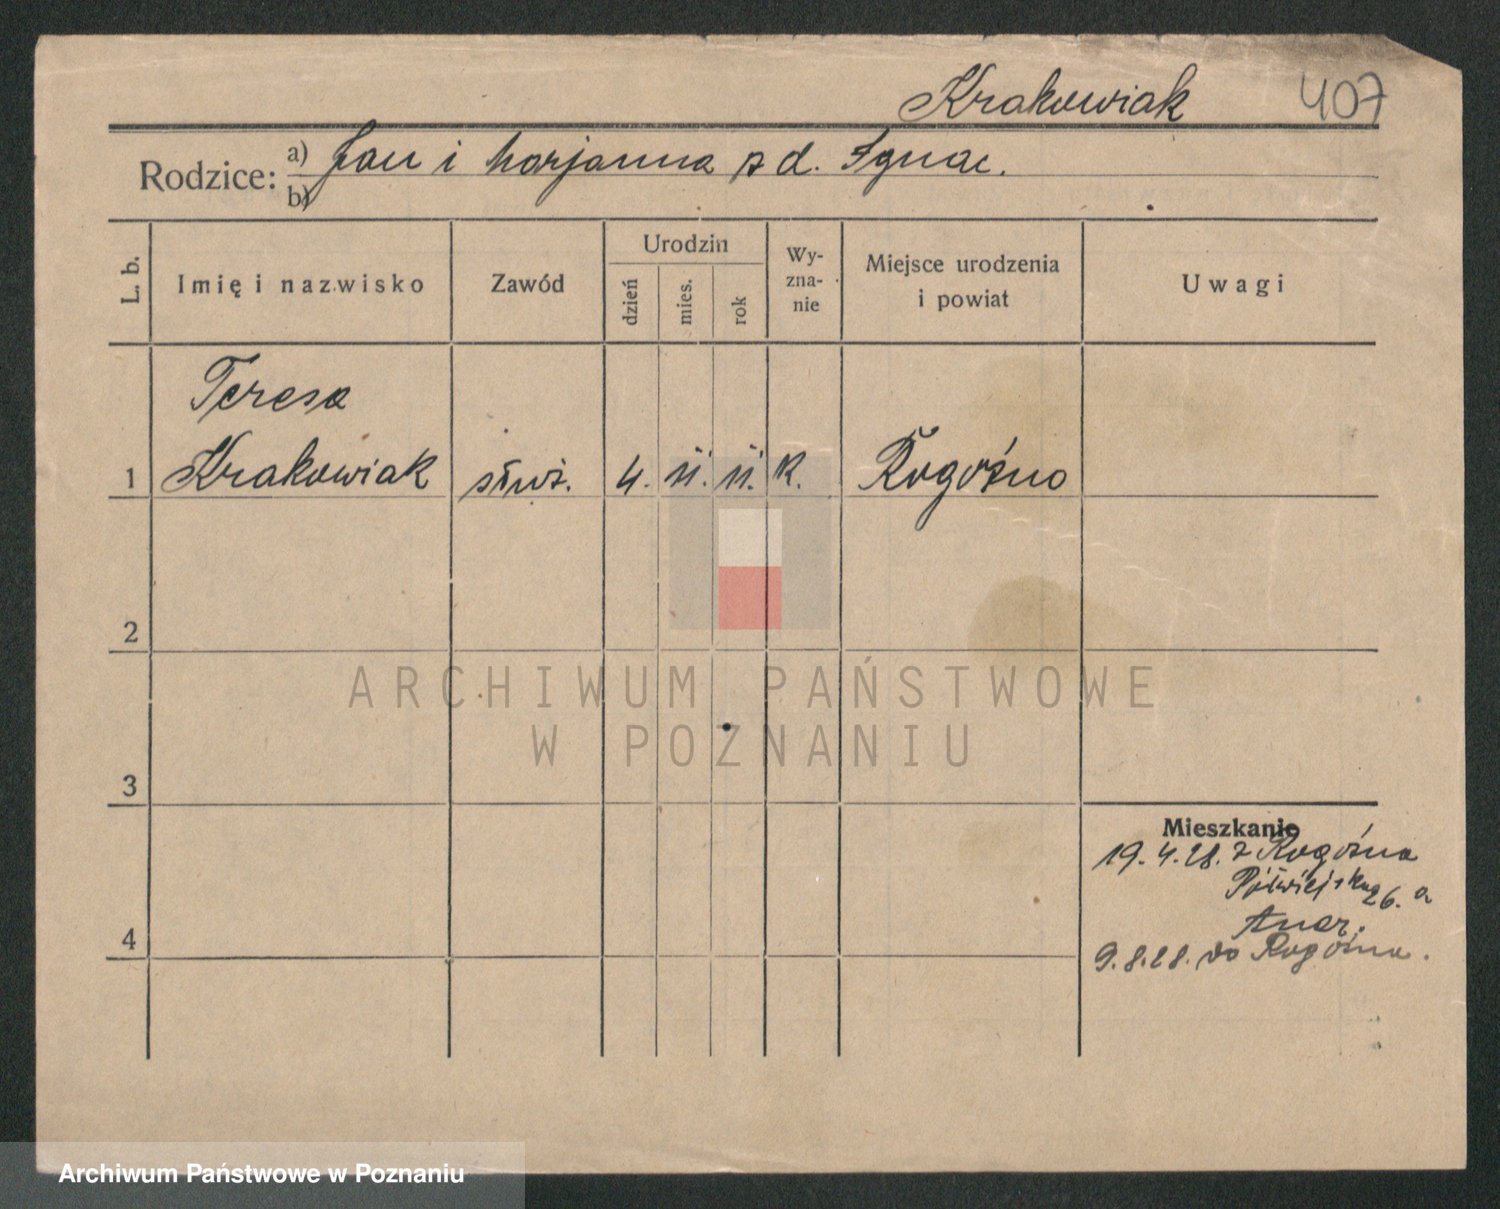 Krakowiak 407
Rodzice: a) Jan i Marjanna z d. Ignac.
b)
L. b.
Imię i nazwisko
Zawód
Urodzin
dzień
mies.
rok
Wy-
zna-
nie
Miejsce urodzenia
i powiat
Uwagi
Teresa
1 Krakowiak służ. 4. 11. 11. K. Rogoźno
2
ARCHIWUM PAŃSTWOWE
W POZNANIU
3
Mieszkanie
19.4.28. z Rogoźna
26. a
4
9.8.28. do Rogoźna.
Archiwum Państwowe w Poznaniu